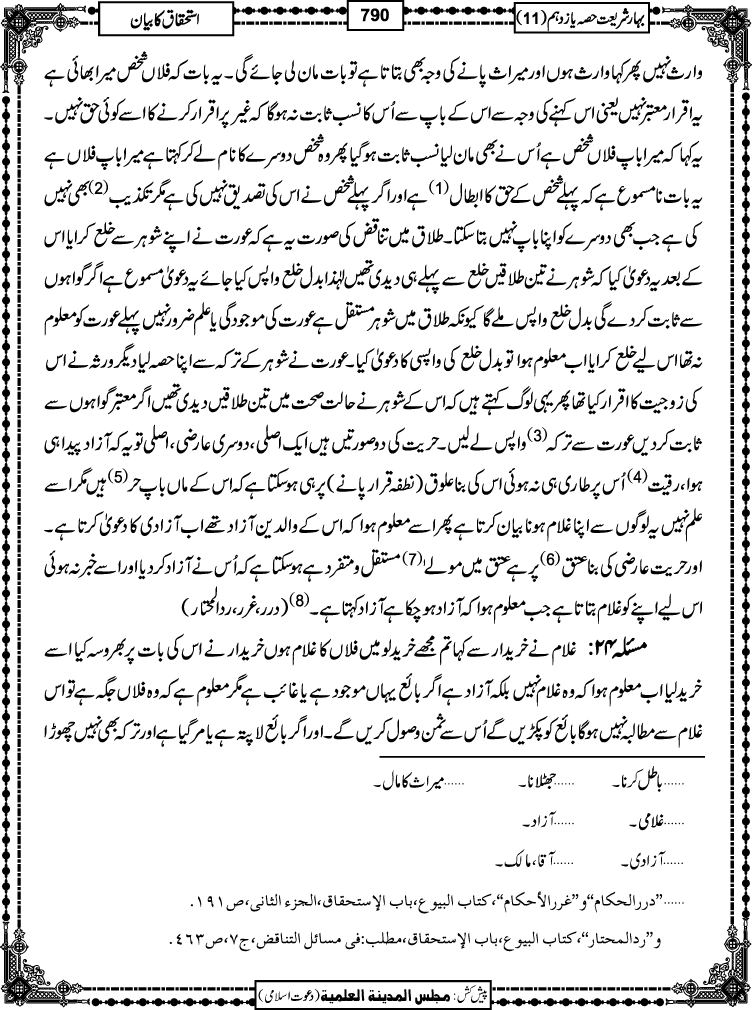 بہارِ شریعت حصہ یازدہم (11)
790
استحقاق کا بیان
وارث نہیں پھر کہا وارث ہوں اور میراث پانے کی وجہ بھی بتاتا ہے تو بات مان لی جائے گی۔ یہ بات کہ فلاں شخص میرا بھائی ہے
یہ اقرار معتبر نہیں یعنی اس کہنے کی وجہ سے اس کے باپ سے اُس کا نسب ثابت نہ ہوگا کہ غیر پر اقرار کرنے کا اسے کوئی حق نہیں۔
یہ کہا کہ میرا باپ فلاں شخص ہے اُس نے بھی مان لیا نسب ثابت ہوگیا پھر وہ شخص دوسرے کا نام لے کر کہتا ہے میرا باپ فلاں ہے
یہ بات نا مسموع ہے کہ پہلے شخص کے حق کا ابطال (1) ہے اور اگر پہلے شخص نے اس کی تصدیق نہیں کی ہے مگر تکذیب (2) بھی نہیں
کی ہے جب بھی دوسرے کو اپنا باپ نہیں بتا سکتا۔ طلاق میں تناقض کی صورت یہ ہے کہ عورت نے اپنے شوہر سے خلع کرایا اس
کے بعد یہ دعویٰ کیا کہ شوہر نے تین طلاقیں خلع سے پہلے ہی دیدی تھیں لہٰذا بدل خلع واپس کیا جائے یہ دعویٰ مسموع ہے اگر گواہوں
سے ثابت کردے گی بدل خلع واپس ملے گا کیونکہ طلاق میں شوہر مستقل ہے عورت کی موجودگی یا علم ضرور نہیں پہلے عورت کو معلوم
نہ تھا اس لیے خلع کرایا اب معلوم ہوا تو بدل خلع کی واپسی کا دعویٰ کیا۔ عورت نے شوہر کے ترکہ سے اپنا حصہ لیا دیگر ورثہ نے اس
کی زوجیت کا اقرار کیا تھا پھر یہی لوگ کہتے ہیں کہ اس کے شوہر نے حالت صحت میں تین طلاقیں دیدی تھیں اگر معتبر گواہوں سے
ثابت کردیں عورت سے ترکہ (3) واپس لے لیں۔ حریت کی دو صورتیں ہیں ایک اصلی، دوسری عارضی، اصلی تو یہ کہ آزاد پیدا ہی
ہوا، رقیت (4) اُس پر طاری ہی نہ ہوئی اس کی بنا علوق (نطفہ قرار پانے) پر ہی ہوسکتا ہے کہ اس کے ماں باپ حر (5) ہیں مگر اسے
علم نہیں یہ لوگوں سے اپنا غلام ہونا بیان کرتا ہے پھر اسے معلوم ہوا کہ اس کے والدین آزاد تھے اب آزادی کا دعویٰ کرتا ہے۔
اور حریت عارضی کی بنا عتق (6) پر ہے عتق میں مولےٰ (7) مستقل و متفرد ہے ہوسکتا ہے کہ اُس نے آزاد کردیا اور اسے خبر نہ ہوئی
اس لیے اپنے کو غلام بتاتا ہے جب معلوم ہوا کہ آزاد ہوچکا ہے آزاد کہتا ہے۔ (8) (درر، غرر، ردالمحتار)
مسئلہ ۲۴: غلام نے خریدار سے کہا تم مجھے خرید لو میں فلاں کا غلام ہوں خریدار نے اس کی بات پر بھروسہ کیا اسے
خرید لیا اب معلوم ہوا کہ وہ غلام نہیں بلکہ آزاد ہے اگر بائع یہاں موجود ہے یا غائب ہے مگر معلوم ہے کہ وہ فلاں جگہ ہے تو اس
غلام سے مطالبہ نہیں ہوگا بائع کو پکڑیں گے اُس سے ثمن وصول کریں گے۔ اور اگر بائع لاپتہ ہے یا مرگیا ہے اور ترکہ بھی نہیں چھوڑا
......باطل کرنا۔ ......جھٹلانا۔ ......میراث کا مال۔
......غلامی۔ ......آزاد۔
......آزادی۔ ......آقا، مالک۔
......”دررالحکام“ و ”غررالأحکام“، کتاب البیوع، باب الإستحقاق، الجزء الثانی، ص۱۹۱.
و ”ردالمحتار“، کتاب البیوع، باب الإستحقاق، مطلب: فی مسائل التناقض، ج۷، ص۴۶۳.
پیش کش: مجلس المدینة العلمیة (دعوت اسلامی)